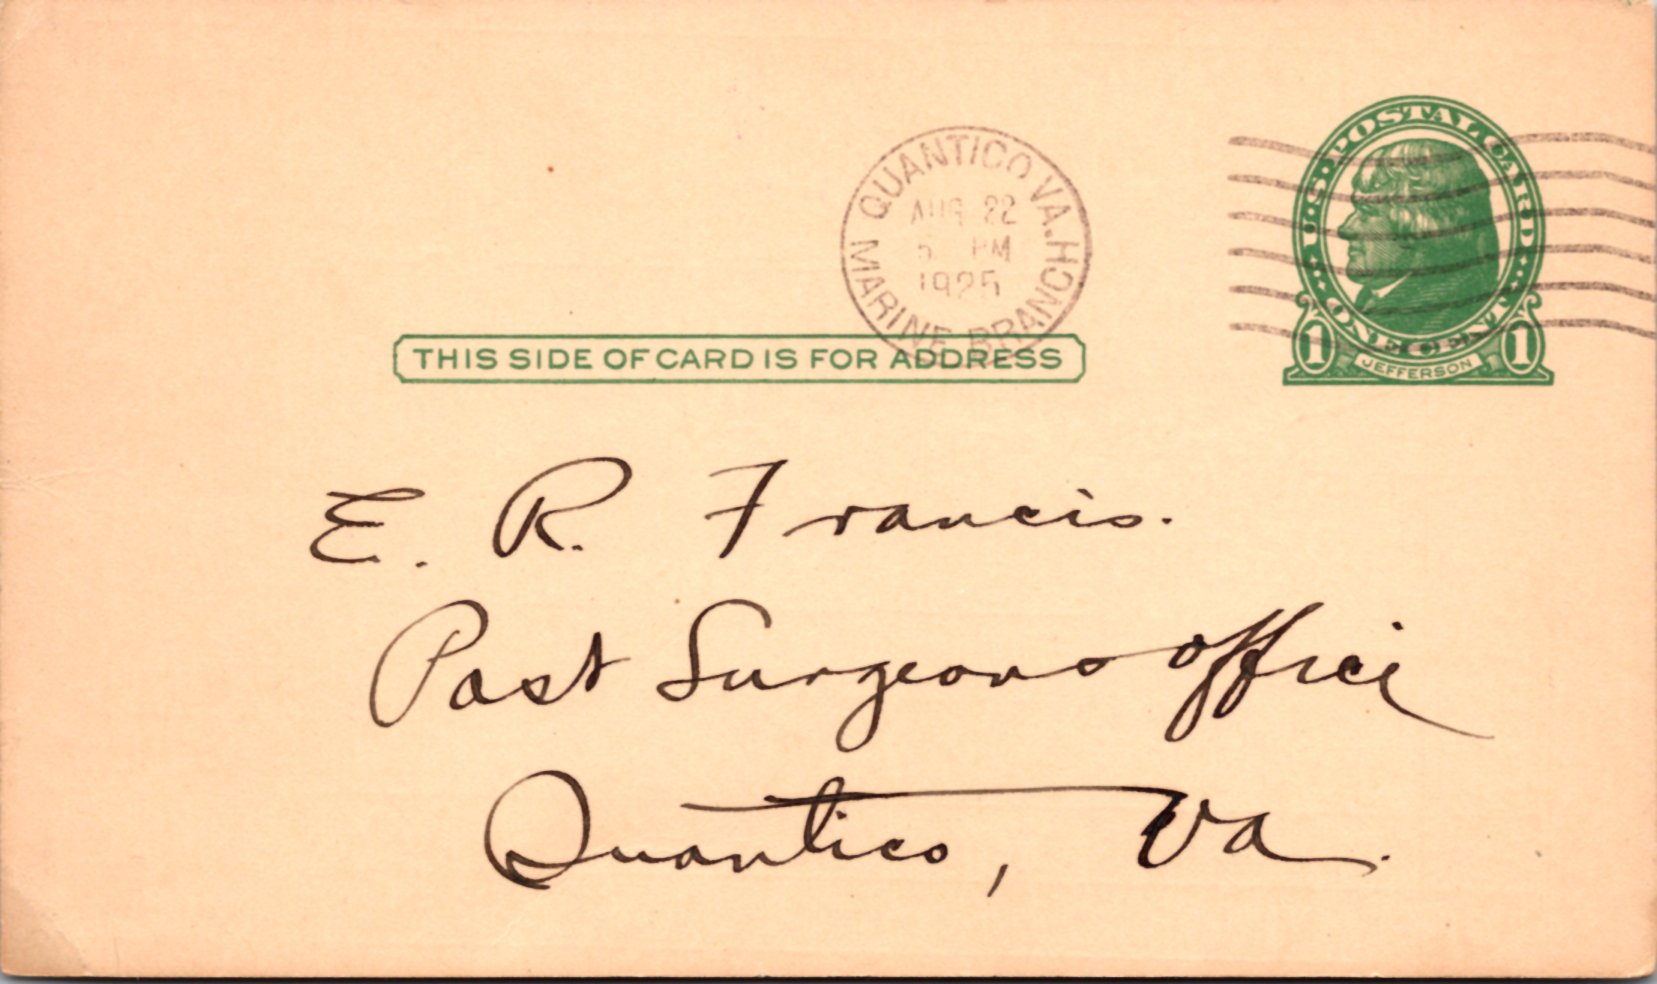 QUANTICO VA. H.
AUG 22
5 PM
1925
MARINE BRANCH
U.S. POSTAL CARD
ONE CENT
1 JEFFERSON 1
THIS SIDE OF CARD IS FOR ADDRESS
E. R. Francis.
Post Surgeons office
Quantico, Va.